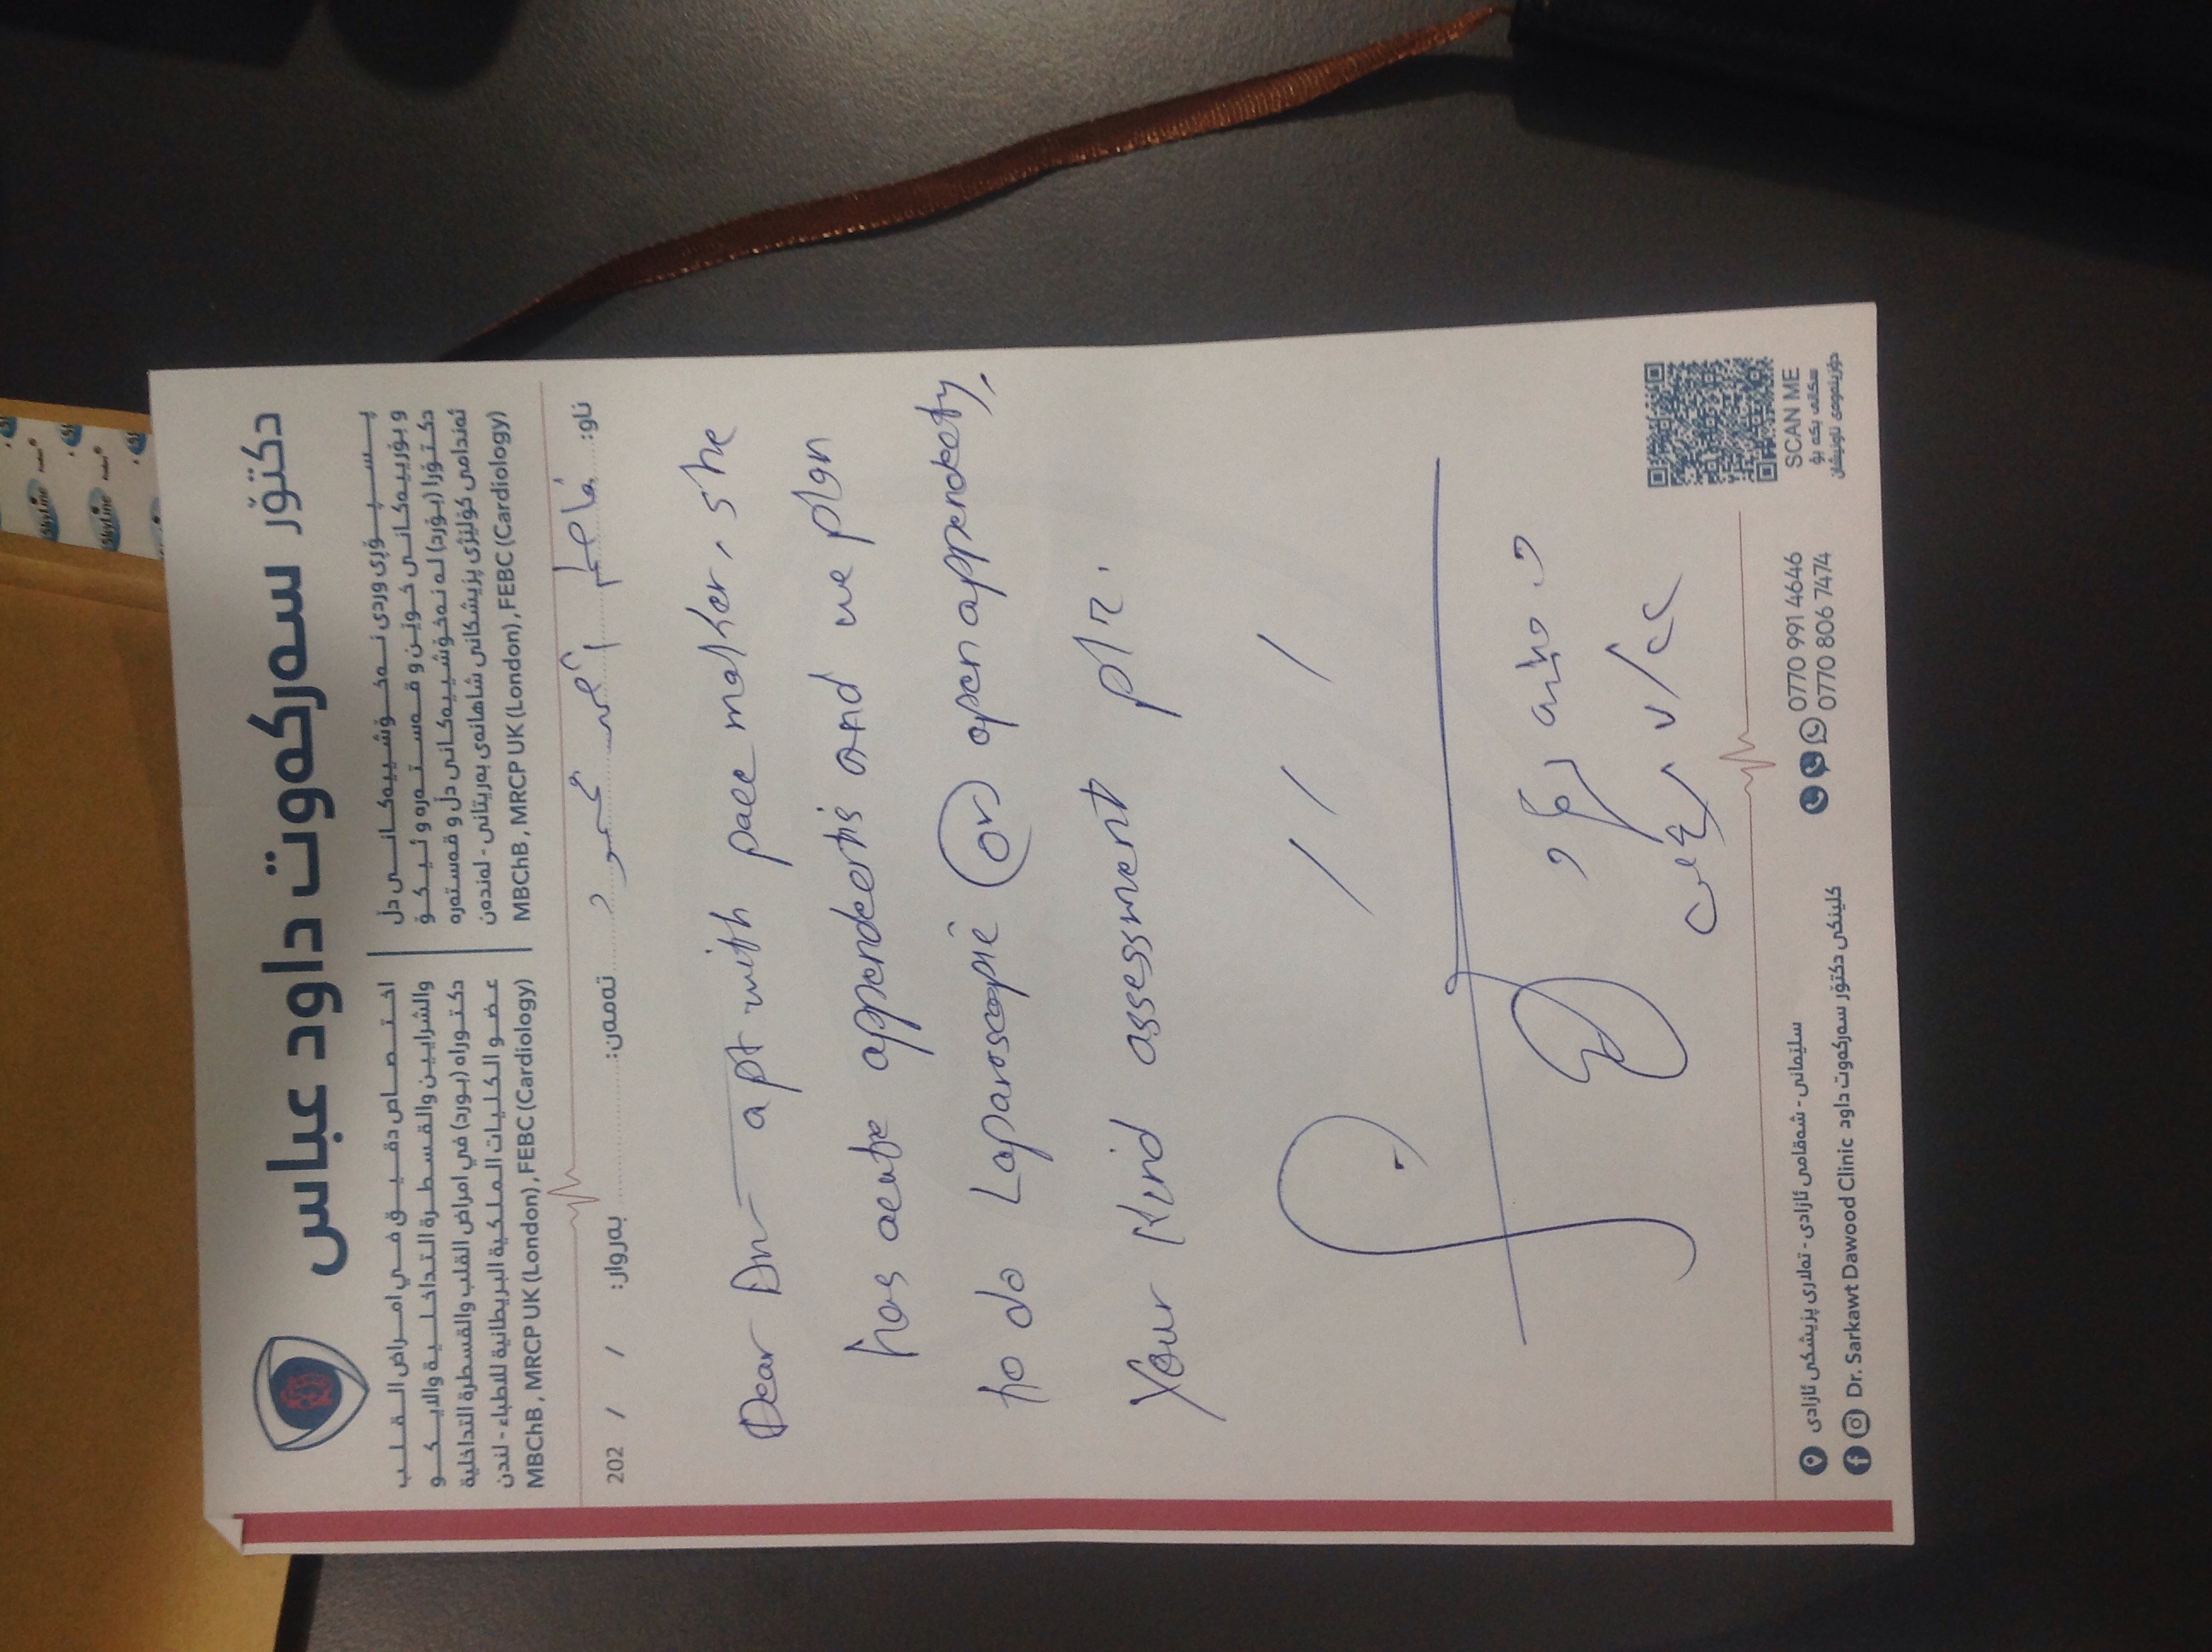 دکتۆر سەرکەوت داود عباس
پـسـپـۆری وردی نـەخـۆشـیـیـەکـانـی دڵ
و بۆرییەکانی خوێن و قەستەرە و ئیکۆ
دکتۆرا (بۆرد) لە نەخۆشییەکانی دڵ و قەستەرە
ئەندامی کۆلێژی پزیشکانی شاهانەی بەریتانی - لەندەن
MBChB , MRCP UK (London) , FEBC (Cardiology)
اختصاص دقيق في امراض القلب
والشرايين والقسطرة التداخلية والايكو
دكتوراه (بورد) في امراض القلب والقسطرة التداخلية
عضو الكليات الملكية البريطانية للاطباء - لندن
MBChB , MRCP UK (London) , FEBC (Cardiology)
ناو: فاطمة محمود تەمەن: بەروار: / / 202
Dear Dr apt with pace maker, she
has acute appendectis and we plan
to do Laparoscopic or open appendecty,
Your Kind assessment plz.
SCAN ME
سکانی بکە بۆ
دۆزینەوەی ناونیشان
0770 991 4646
0770 806 7474
سلێمانی - شەقامی ئازادی - تەلاری پزیشکی ئازادی
Dr. Sarkawt Dawood Clinic کلینکی دکتۆر سەرکەوت داود
SkyLine